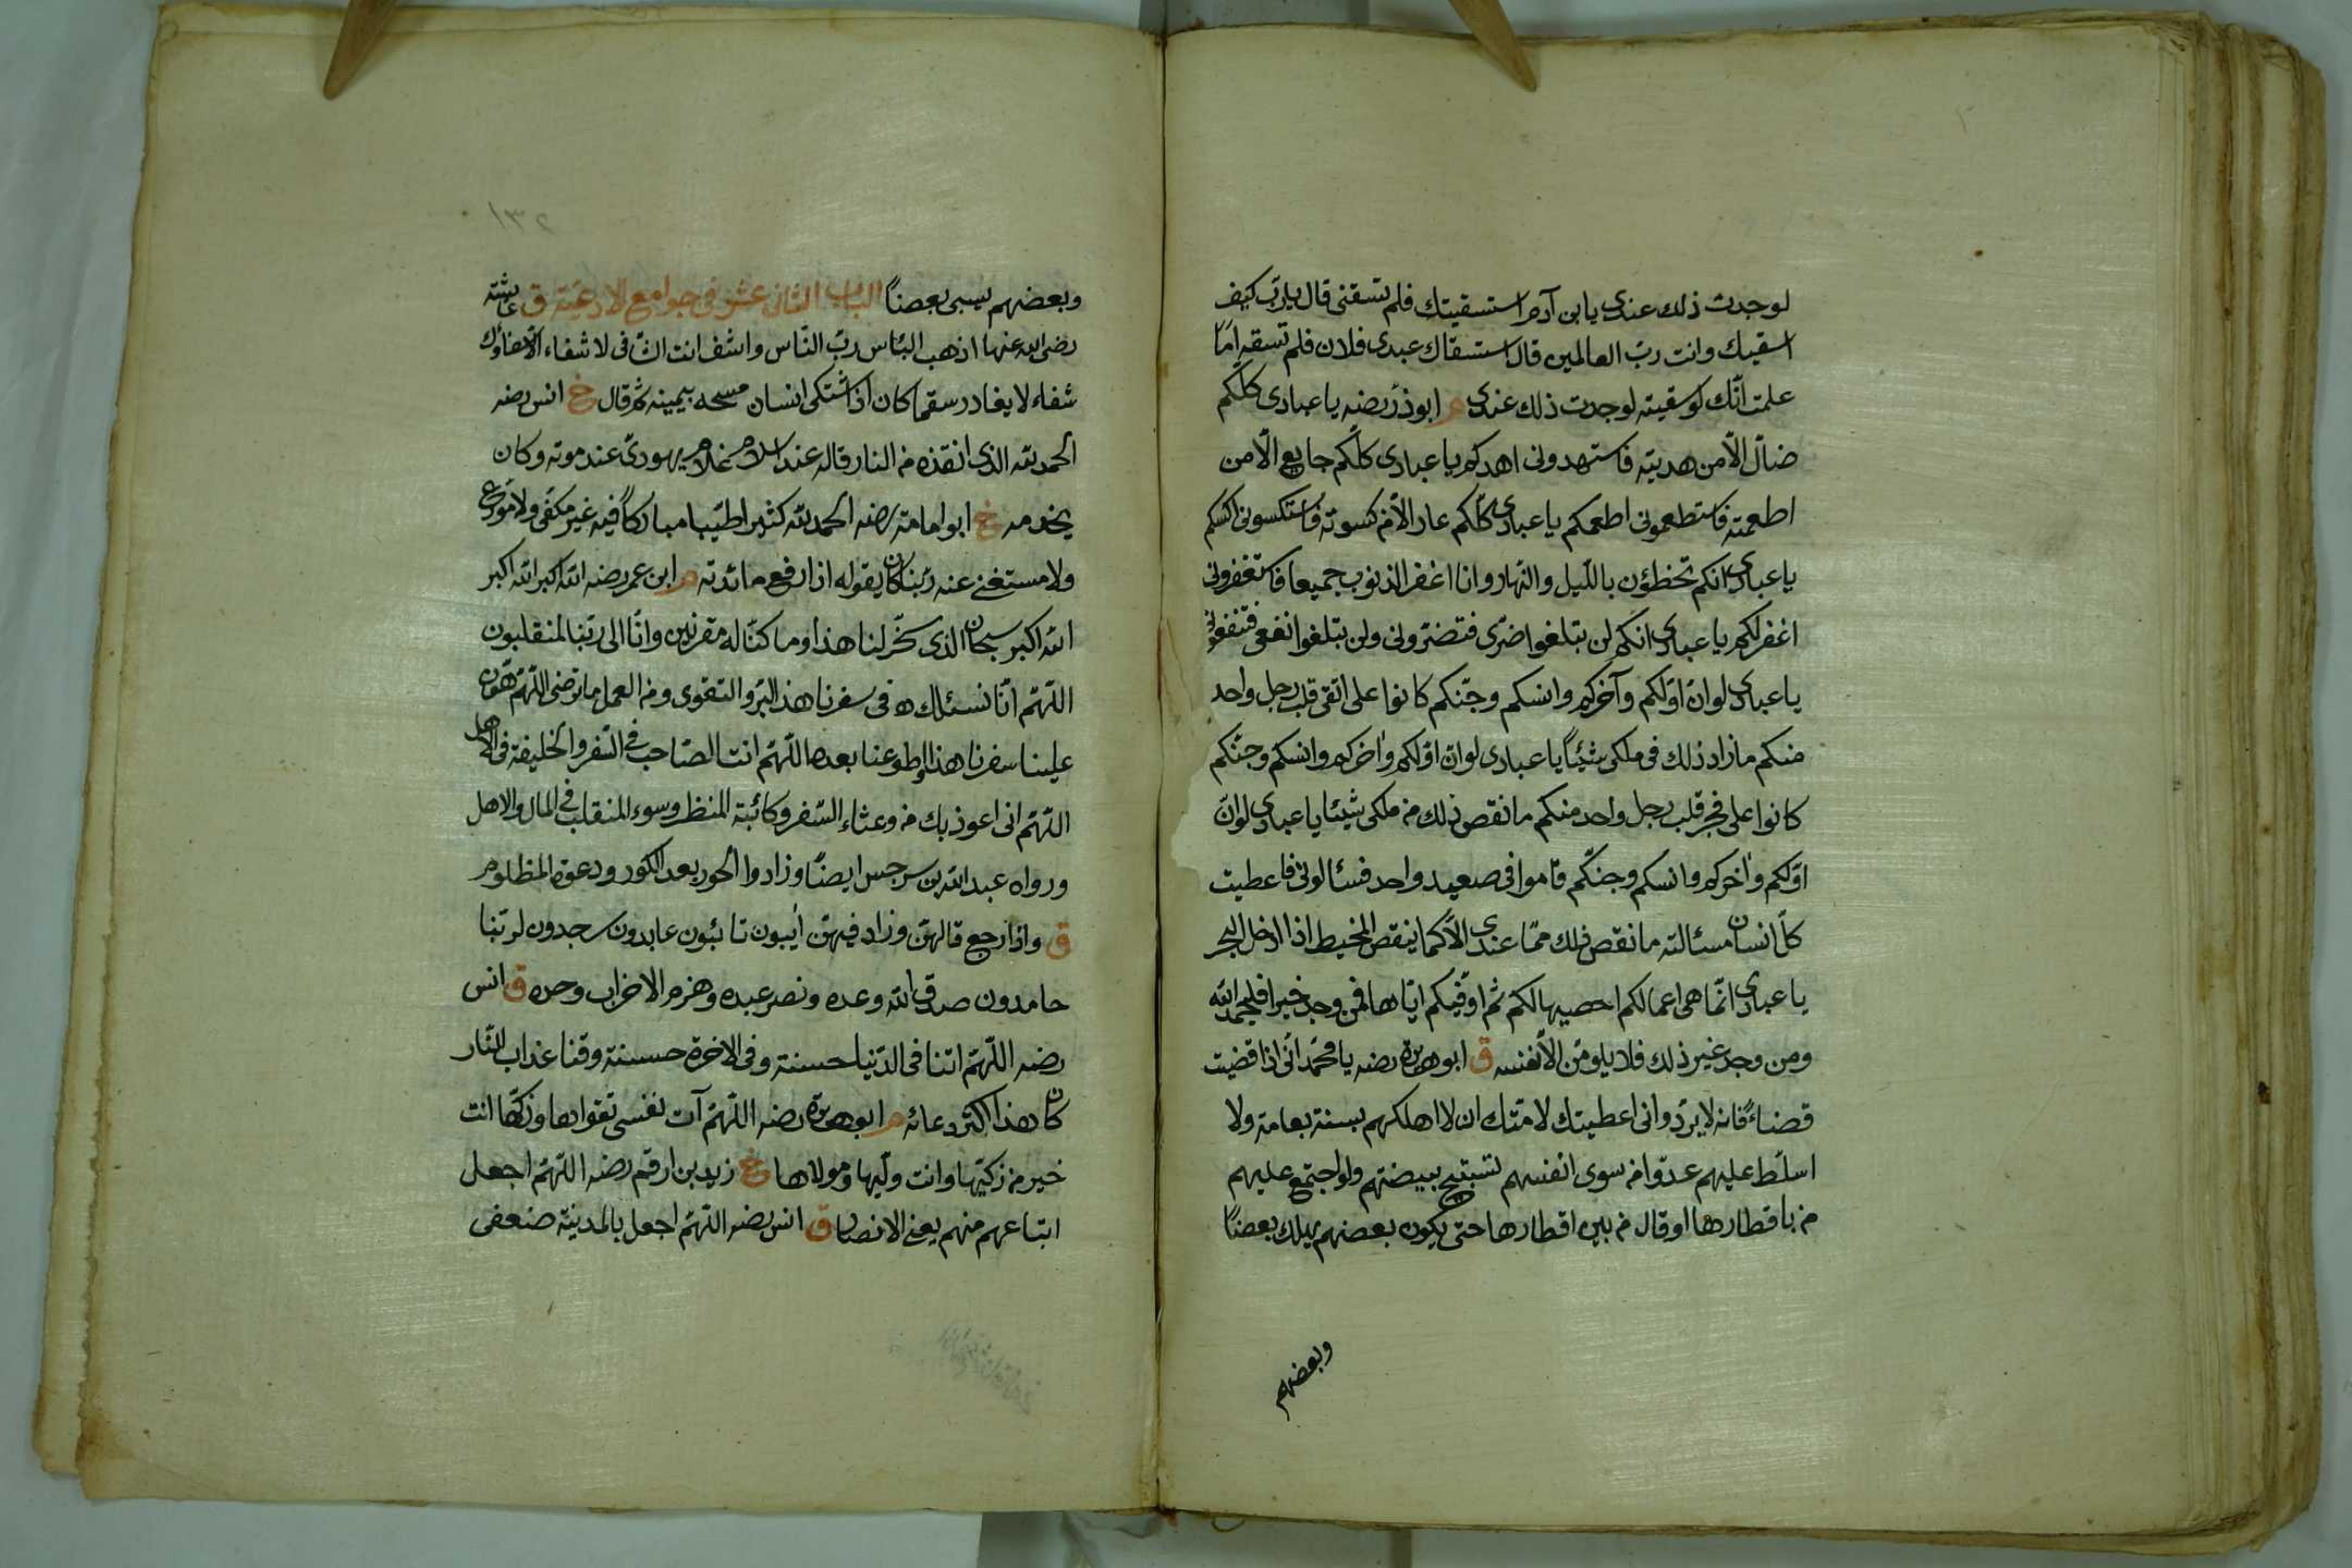 لوجدت ذلك عندى يا بن آدم استسقيتك فلم تسقنى قال يا رب كيف
اسقيك وانت ربّ العالمين قال استسقاك عبدى فلان فلم تسقه امّا
علمت انّك لو سقيته لوجدت ذلك عندى م ابو ذر رضه يا عبادى كلّكم
ضالّ الّا من هديته فاستهدونى اهدكم يا عبادى كلّكم جايع الّا من
اطعمته فاستطعمونى اطعمكم يا عبادى كلّكم عار الّا من كسوته فاستكسونى اكسكم
يا عبادى انكم تخطؤن باللّيل والنّهار وانا اغفر الذنوب جميعا فاستغفرونى
اغفر لكم يا عبادى انكم لن تبلغوا ضرّى فتضرّونى ولن تبلغوا نفعى فتنفعونى
يا عبادى لوانّ اوّلكم وآخركم وانسكم وجنّكم كانوا على اتقى قلب رجل واحد
منكم ما زاد ذلك فى ملكى شيئاً يا عبادى لوانّ اوّلكم وآخركم وانسكم وجنّكم
كانوا على فجر قلب رجل واحد منكم ما نقص ذلك من ملكى شيئا يا عبادى لوانّ
اوّلكم وآخركم وانسكم وجنّكم قاموا فى صعيد واحد فسئالونى فاعطيت
كلّ انسان مسئالته ما نقص ذلك ممّا عندى الّا كما ينقص المخيط اذا ادخل البحر
يا عبادى انّما هى اعمالكم احصيها لكم ثم اوفّيكم ايّاها فمن وجد خيرا فليحمد الله
ومن وجد غير ذلك فلا يلومنّ الّا نفسه ق ابو هريرة رضه يا محمّد انّى اذا قضيت
قضاءً فانه لا يردّ وانى اعطيتك لامّتك ان لا اهلكهم بسنة بعامة ولا
اسلّط عليهم عدوّا من سوى انفسهم يستبيح بيضتهم ولو اجتمع عليهم
من باقطارها او قال من بين اقطارها حتى يكون بعضهم يهلك بعضاً
وبعضهم
١٣٢
وبعضهم يسبى بعضاً الباب الثانى عشر فى جوامع الادعية ق عايشة
رضى الله عنها اذهب البئاس ربّ النّاس واشف انت الشّافى لا شفاء الّا شفاؤك
شفاء لا يغادر سقما كان اذا اشتكى انسان مسحه بيمينه ثم قال خ انس رضه
الحمد لله الذى انقذه من النار قاله عند اسلام غلام يهودىّ عند موته وكان
يخدمه خ ابو امامة رضه الحمد لله كثيرا طيّبا مباركاً فيه غير مكفى ولا مودع
ولا مستغنى عنه ربّنا كان يقوله اذا رفع مائدته م ابن عمر رضه الله اكبر الله اكبر
الله اكبر سبحان الذى سخّر لنا هذا وما كنّا له مقرنين وانّا الى ربّنا لمنقلبون
اللّهمّ انّا نسئلك فى سفرنا هذا البرّ والتقوى ومن العمل ما ترضى اللّهمّ هوّن
علينا سفرنا هذا واطو عنا بعده اللّهمّ انت الصّاحب فى السّفر والخليفة فى الاهل
اللّهمّ انى اعوذ بك من وعثاء السّفر وكائبة المنظر وسوء المنقلب فى المال والاهل
ورواه عبد الله بن سرجس ايضاً وزادوا الحور بعد الكور ودعوة المظلوم
ق واذا رجع قالهنّ وزاد فيهنّ آيبون تائبون عابدون ساجدون لربّنا
حامدون صدق الله وعده ونصر عبده وهزم الاحزاب وحده ق انس
رضه اللّهمّ اتنا فى الدّنيا حسنة وفى الاخرة حسنة وقنا عذاب النّار
كان هذا اكثر دعائه م ابو هريرة رضه اللّهمّ آت نفسى تقواها وزكّها انت
خير من زكيّها وانت وليّها ومولاها خ زيد بن ارقم رضه اللّهمّ اجعل
اتباعهم منهم يعنى الانصار ق انس رضه اللّهمّ اجعل بالمدينة ضعفى